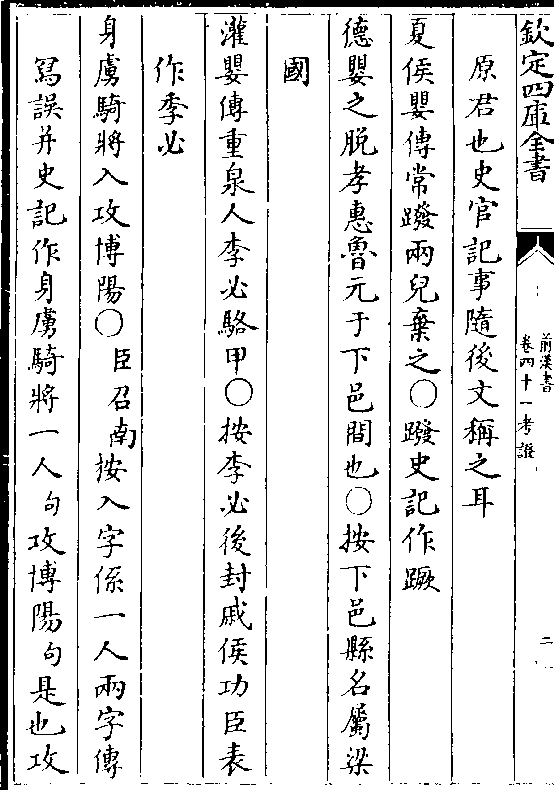 欽定四庫全書
前漢書
卷四十一考證
二
原君也史官記事隨後文稱之耳
夏侯嬰傳常蹳兩兒棄之〇蹳史記作蹶
德嬰之脱孝惠魯元于下邑間也〇按下邑縣名屬梁
國
灌嬰傳重泉人李必駱甲〇按李必後封戚侯功臣表
作季必
身虜騎將入攻博陽〇臣召南按入字係一人兩字傳
寫誤并史記作身虜騎將一人句攻博陽句是也攻